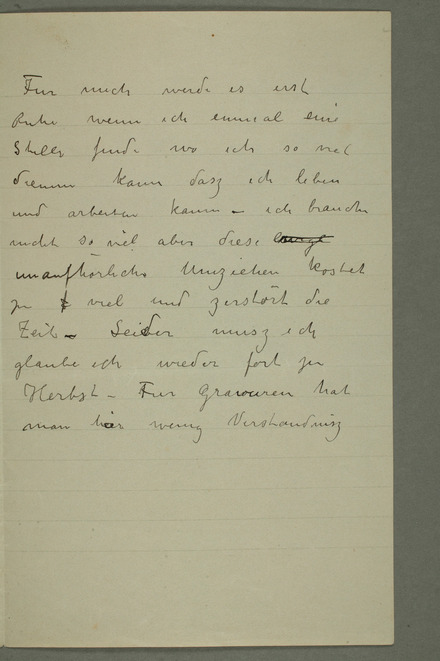 Fur mich werde es erst
Ruhe wenn ich einmal eine
Stelle finde wo ich so viel
dienen kann dasz ich leben
und arbeiten kann – ich brauche
nicht so viel aber diese
unaufhörliche Umziehen kostet
zu viel und zerstört die
Zeit – Leider musz ich
glaube ich wieder fort zu
Herbst – Fur Gravuren hat
man hier wenig Verstandnisz